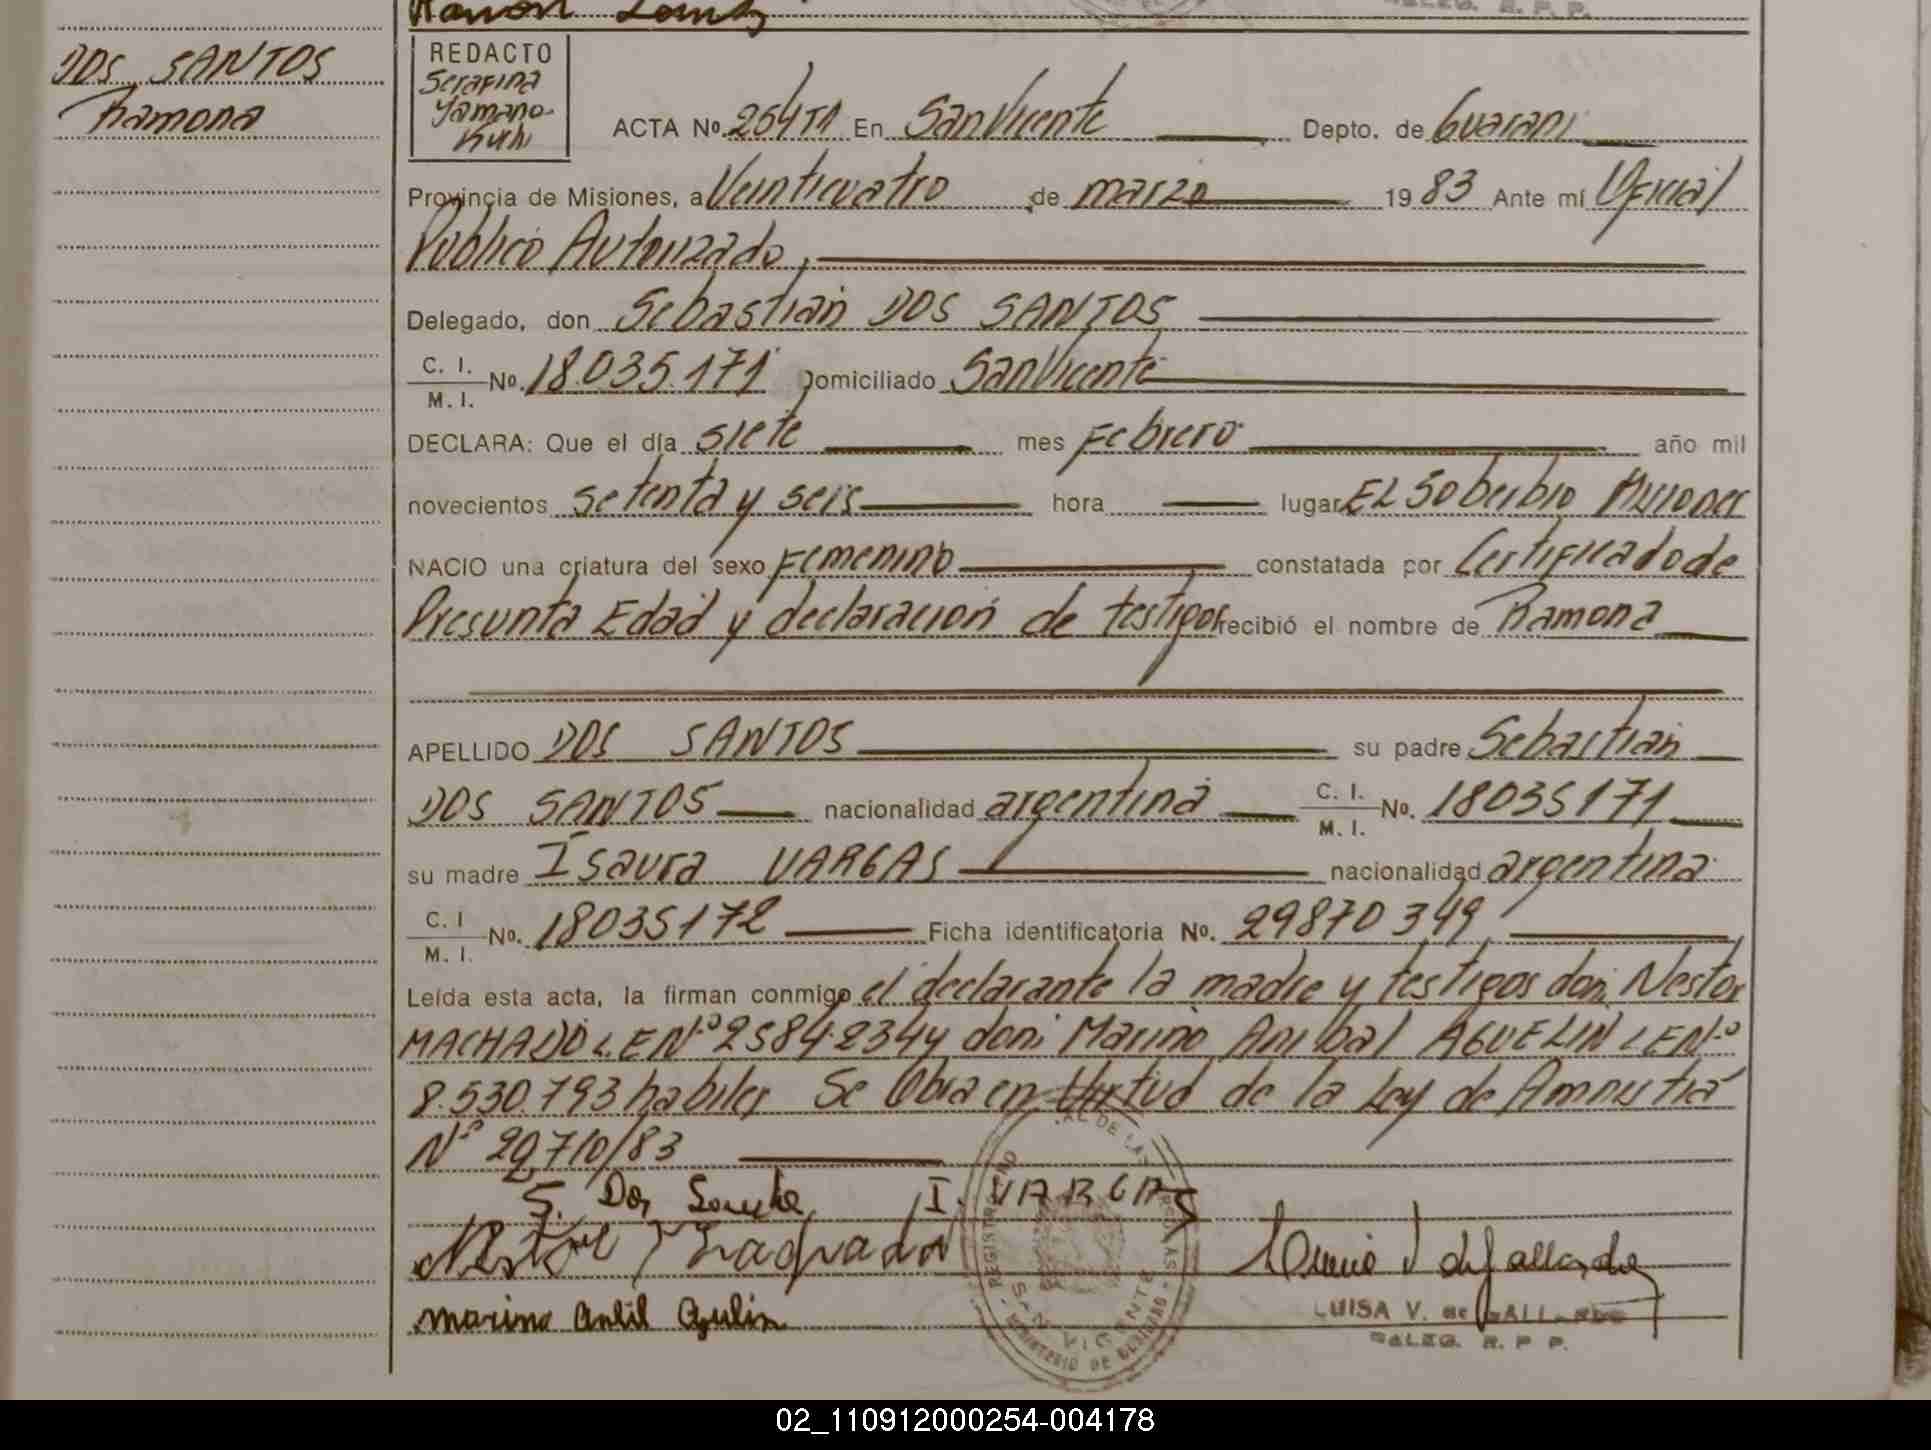 DOS SANTOS
Ramona
REDACTO
Serafina
Yamano-
Kuhn
ACTA No. 264 T1 En San Vicente Depto. de Guarani
Provincia de Misiones, a Veinticuatro de marzo 1983 Ante mí Oficial
Publico Autorizado,
Delegado, don Sebastian DOS SANTOS
C. I.
M. I. No. 18.035.171 Domiciliado San Vicente
DECLARA: Que el día siete mes Febrero año mil
novecientos setenta y seis hora lugar EL Soberbio Misiones
NACIO una criatura del sexo Femenino constatada por Certificado de
Presunta Edad y declaración de testigos recibió el nombre de Ramona
APELLIDO DOS SANTOS su padre Sebastian
DOS SANTOS nacionalidad argentina C. I. M. I. No. 18035171
su madre Isaura VARGAS nacionalidad argentina
C. I M. I. No. 18035172 Ficha identificatoria No. 29870349
Leída esta acta, la firman conmigo el declarante la madre y testigos don Nestor
MACHADO L.E Nº 2584.234 y don Marino Anibal AGUELIN L E Nº
8.530.793 habiles Se Obra en Virtud de la Ley de Amnistia
Nº 29,710/83
S. Dos Santos I. VARGAS
LUISA V. de GALLARDO
DELEG. R. P. P.
REGISTRO
SAN VICENTE
02_110912000254-004178